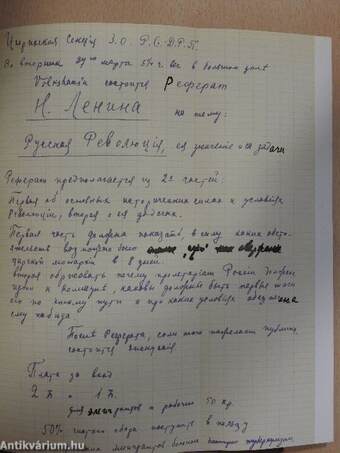 Цюрихская Секція З.О. Р.С-Д.Р.П.
Во вторник 27го марта 5½ ч. веч. в большом зале
Volkshaus'a состоится Реферат
Н. Ленина на тему:
Русская Революція, ея значеніе и ея задачи
Реферат предполагается из 2х частей:
Первая об основных исторических силах и условіях
Революціи, вторая о ея задачах.
Первая часть должна показать, в силу каких обсто-
ятельств возможно было
царской монархіи в 8 дней.
вторая обрисовать почему пролетаріат Россіи
идти к коммуне, каковы должны быть первые шаги
его по этому пути и при каких условіях обезпечена
ему победа
После Реферата, если того пожелает публика,
состоится дискуссія.
Плата за вход
2 fr. и 1 fr.
для эмигрантов и рабочих 50 ср.
50% чистого сбора поступит в пользу
эмигрантов больных туберкулезом
Antikvárium.hu